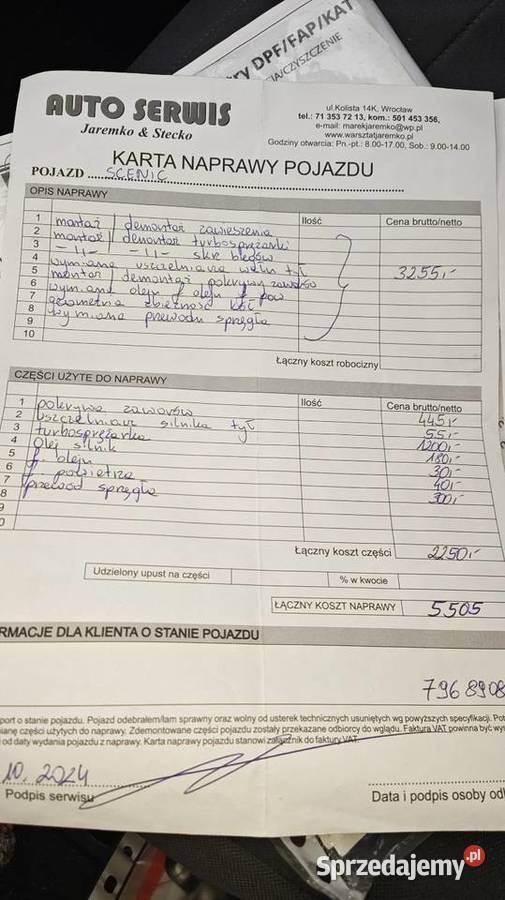 ry DPF/FAP/KAT
CZYSZCZENIE
AUTO SERWIS
Jaremko & Stecko
ul.Kolista 14K, Wrocław
tel.: 71 353 72 13, kom.: 501 453 356,
e-mail: marekjaremko@wp.pl
www.warsztatjaremko.pl
Godziny otwarcia: Pn.-pt.: 8.00-17.00, Sob.: 9.00-14.00
KARTA NAPRAWY POJAZDU
POJAZD SCENIC
OPIS NAPRAWY
Ilość Cena brutto/netto
1 montaż / demontaż zawieszenia
2 montaż / demontaż turbosprężarki
3 -11- -11- skr biegów
4 wymiana uszczelniacza wału tył
5 montaż / demontaż pokrywy zaworów 3255,-
6 wymiana oleju f oleju f pow
7 geometria zbieżność kół
8 wymiana przewodu sprzęgła
9
10
Łączny koszt robocizny
CZĘŚCI UŻYTE DO NAPRAWY
Ilość Cena brutto/netto
1 pokrywa zaworów 445,-
2 uszczelniacz silnika tył 55,-
3 turbosprężarka 1200,-
4 olej silnik 180,-
5 f. oleju 30,-
6 f. powietrza 40,-
7 przewód sprzęgła 300,-
8
9
0
Łączny koszt części 2250,-
Udzielony upust na części % w kwocie
ŁĄCZNY KOSZT NAPRAWY 5505
RMACJE DLA KLIENTA O STANIE POJAZDU
796 8908
port o stanie pojazdu. Pojazd odebrałem/łam sprawny oraz wolny od usterek technicznych usuniętych wg powyższych specyfikacji. Pot
mianę części użytych do naprawy. Zdemontowane części pojazdu zostały przekazane odbiorcy do wglądu. Faktura VAT powinna być wy
i od daty wydania pojazdu z naprawy. Karta naprawy pojazdu stanowi załącznik do faktury VAT.
10. 2024
Podpis serwisu
Data i podpis osoby od
Sprzedajemy.pl